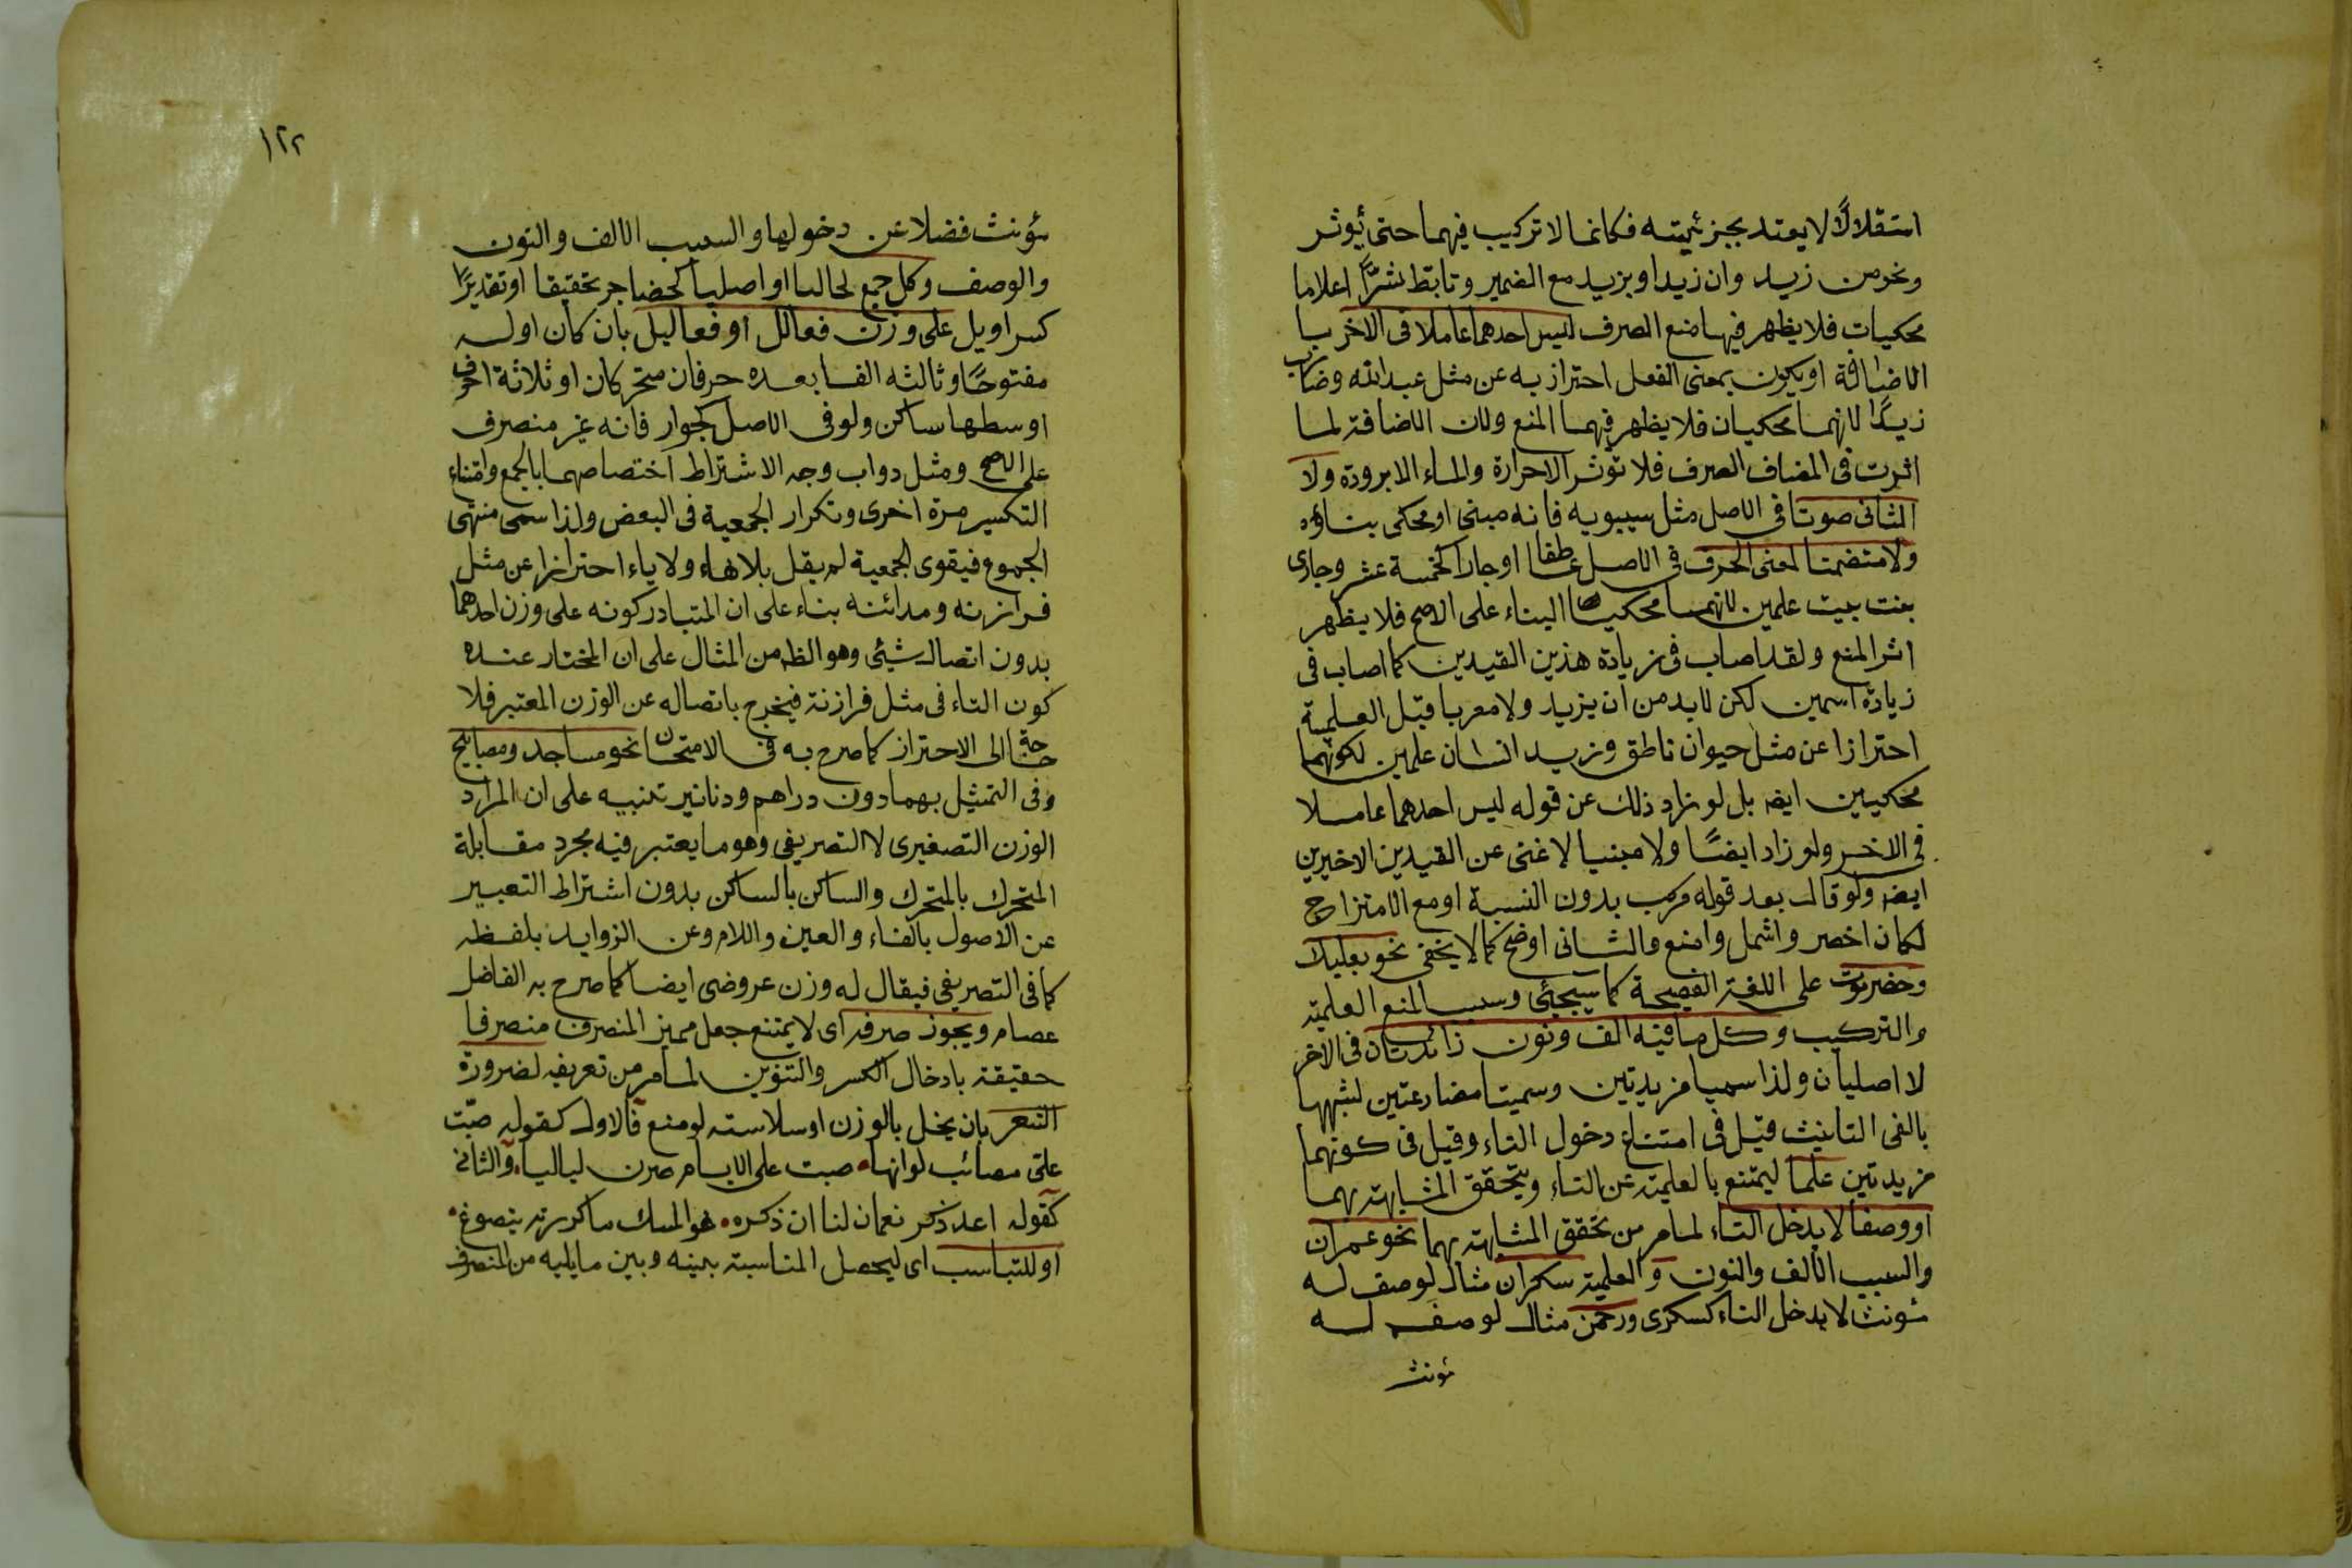 استقلالًا لا يعتد بجزئيته فكانما لا تركيب فيهما حتى يؤثر
ونحو من زيد وان زيدا وبزيد مع الضمير وتابط شرًّا اعلاما
محكيات فلا يظهر فيها منع الصرف ليس احدهما عاملا فى الاخر با
الاضافة او يكون بمعنى الفعل احتراز به عن مثل عبد الله وضارب
زيدًا لانهما محكيان فلا يظهر فيهما المنع ولان الاضافة لما
اثرت فى المضاف الصرف فلا تؤثر الاحرارة والماء الا برودة ولا
الثانى صوتا فى الاصل مثل سيبويه فانه مبنى او محكى بناؤه
ولا متضمنا لمعنى الحرف فى الاصل عاطفا او جارا كخمسة عشر وجارى
بيت بيت علمين لانهما محكيا البناء على الاصح فلا يظهر
اثر المنع ولقد اصاب فى زيادة هذين القيدين كما اصاب فى
زيادة اسمين لكن لابد من ان يزيد ولا معربا قبل العلمية
احترازا عن مثل حيوان ناطق وزيد انسان علمين لكونهما
محكيين ايضا بل لو زاد ذلك عن قوله ليس احدهما عاملا
فى الاخر ولو زاد ايضًا ولا مبنيا لاغنى عن القيدين الاخيرين
ايضا ولو قال بعد قوله مركب بدون النسبة او مع الامتزاج
لكان اخصر واشمل وامنع والثانى اوضح كما لا يخفى نحو بعلبك
وحضرموت على اللغة الفصيحة كما سيجئى وسبب المنع العلمية
والتركيب وكل ما فيه الف ونون زائدتان فى الاخر
لا اصليان ولذا سميا مزيدتين وسميتا مضارعتين لشبهها
بالفى التانيث قيل فى امتناع دخول التاء وقيل فى كونهما
مزيدتين علما ليمتنع بالعلمية عن التاء ويتحقق المشابهة بهما
او وصفا لا يدخل التاء لما مر من تحقق المشابهة بهما نحو عمران
والسبب الالف والنون والعلمية سكران مثال لوصف له
مؤنث لا يدخل التاء كسكرى ورحمن مثال لوصف له
مؤنث
١٢٢
مؤنث فضلا عن دخولها والسبب الالف والنون
والوصف وكل جمع لحالا او اصليا كحضاجر تحقيقا او تقديرًا
كسراويل على وزن فعالل او فعاليل بان كان اوله
مفتوحًا وثالثه الفا بعده حرفان متحركان او ثلاثة احرف
اوسطها ساكن ولو فى الاصل كجوار فانه غير منصرف
على الاصح ومثل دواب وجه الاشتراط اختصاصهما بالجمع وامتناء
التكسير مرة اخرى وتكرار الجمعية فى البعض ولذا سمى منتهى
الجموع فيقوى الجمعية لم يقل بلا هاء ولا ياء احترازا عن مثل
فرازنه ومدائنه بناء على ان المتبادر كونه على وزن احدهما
بدون اتصال شيئ وهو الظ من المثال على ان المختار عنده
كون التاء فى مثل فرازنة فيخرج باتصاله عن الوزن المعتبر فلا
حاجة الى الاحتراز كما صرح به فى الامتحان نحو مساجد ومصابيح
وفى التمثيل بهما دون دراهم ودنانير تنبيه على ان المراد
الوزن التصغيرى لا التصريفى وهو ما يعتبر فيه مجرد مقابلة
المتحرك بالمتحرك والساكن بالساكن بدون اشتراط التعبير
عن الاصول بالفاء والعين واللام وعن الزوايد بلفظه
كما فى التصريفى فيقال له وزن عروضى ايضا كما صرح به الفاضل
عصام ويجوز صرفه اى لا يمتنع جعل مميز المنصرف منصرفا
حقيقة بادخال الكسر والتنوين لما مر من تعريفه لضرورة
الشعر بان يخل بالوزن او سلاسته لو منع فالاول كقوله صبّت
علىّ مصائب لو انها • صبت على الايام صرن لياليا • والثانى
كقوله اعد ذكر نعمان لنا ان ذكره • هو المسك ما كررته يتضوع •
او للتناسب اى ليحصل المناسبة بينه وبين ما يليه من المنصرف